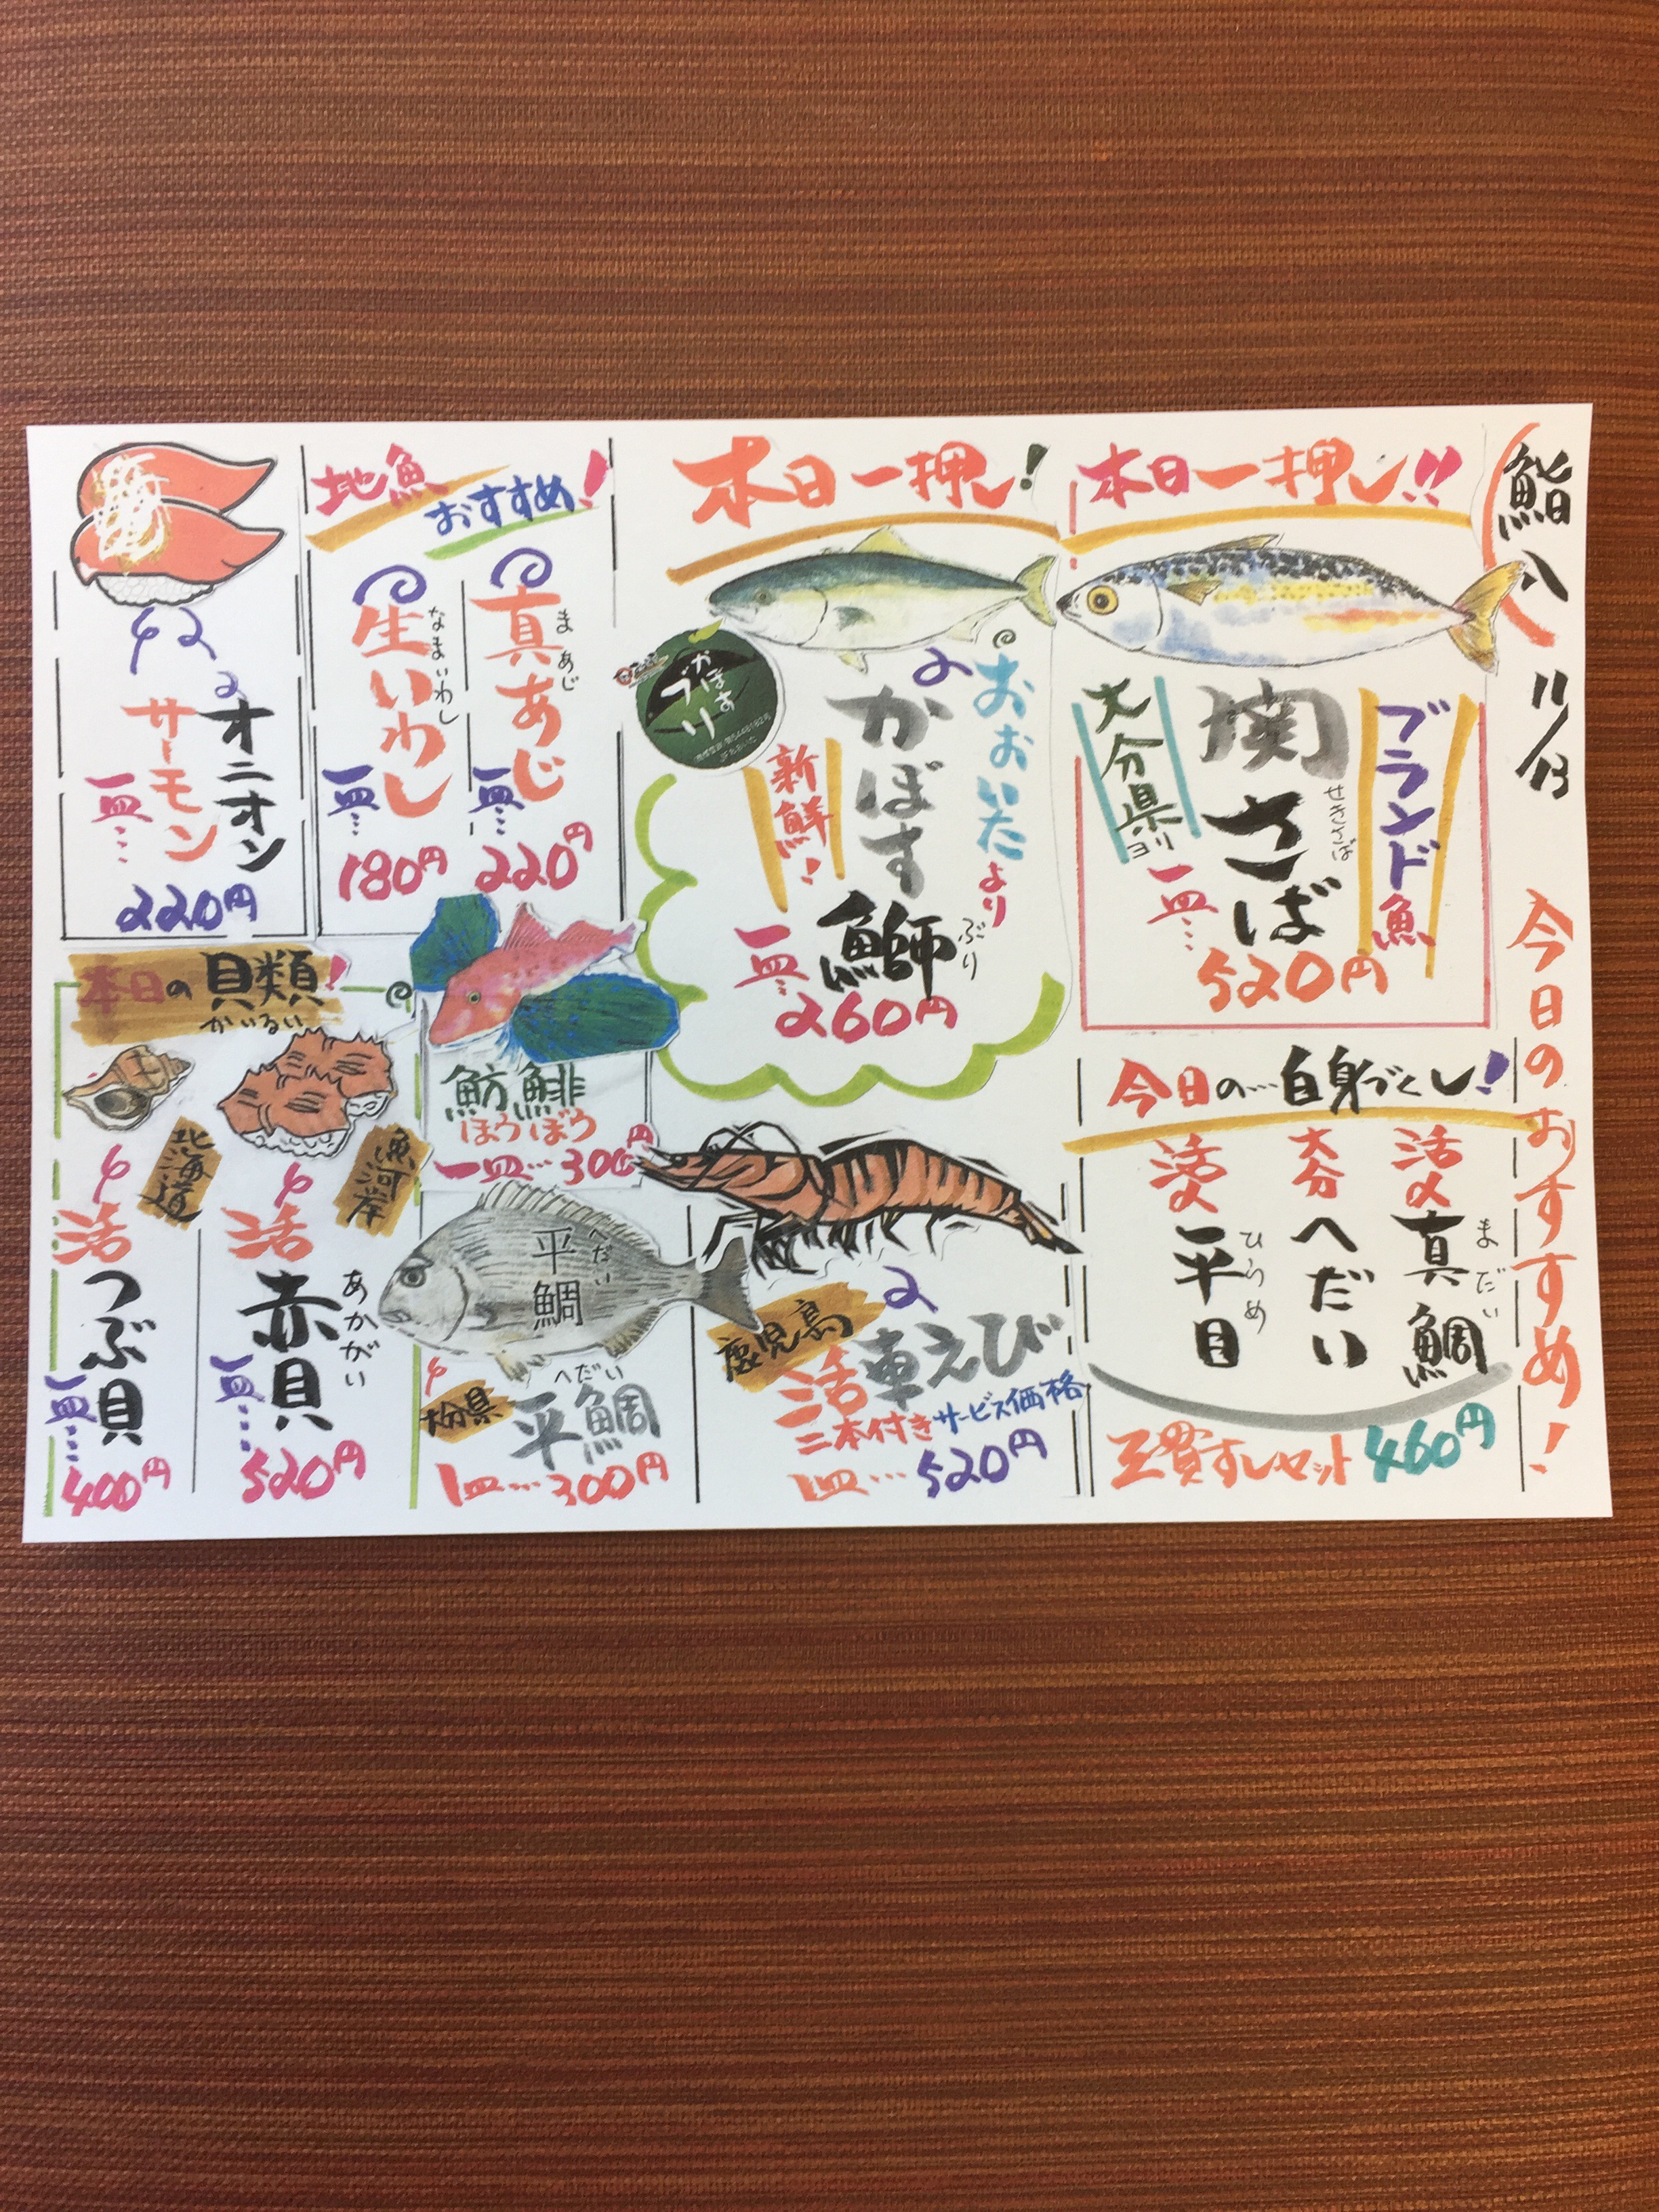 鮨八
11/13
今日のおすすめ!
本日一押し!!
ブランド魚
関さば
せきさば
大分県ヨリ
一皿…
520円
本日一押し!
おおいたより
かぼす鰤
ぶり
新鮮!
かぼす
ブリ
一皿…
260円
地魚
おすすめ!
真あじ
まあじ
一皿…
220円
生いわし
なまいわし
一皿…
180円
オニオン
サーモン
一皿…
220円
今日の…白身づくし!
活〆
真鯛
まだい
大分
へだい
活〆
平目
ひらめ
三貫すしセット
460円
鹿児島
活車えび
二本付き
サービス価格
一皿…520円
魴鮄
ほうぼう
一皿…300円
平鯛
へだい
大分県
平鯛
へだい
一皿…300円
本日の貝類!
かいるい
魚河岸
活
赤貝
あかがい
一皿…
520円
北海道
活
つぶ貝
一皿…
400円